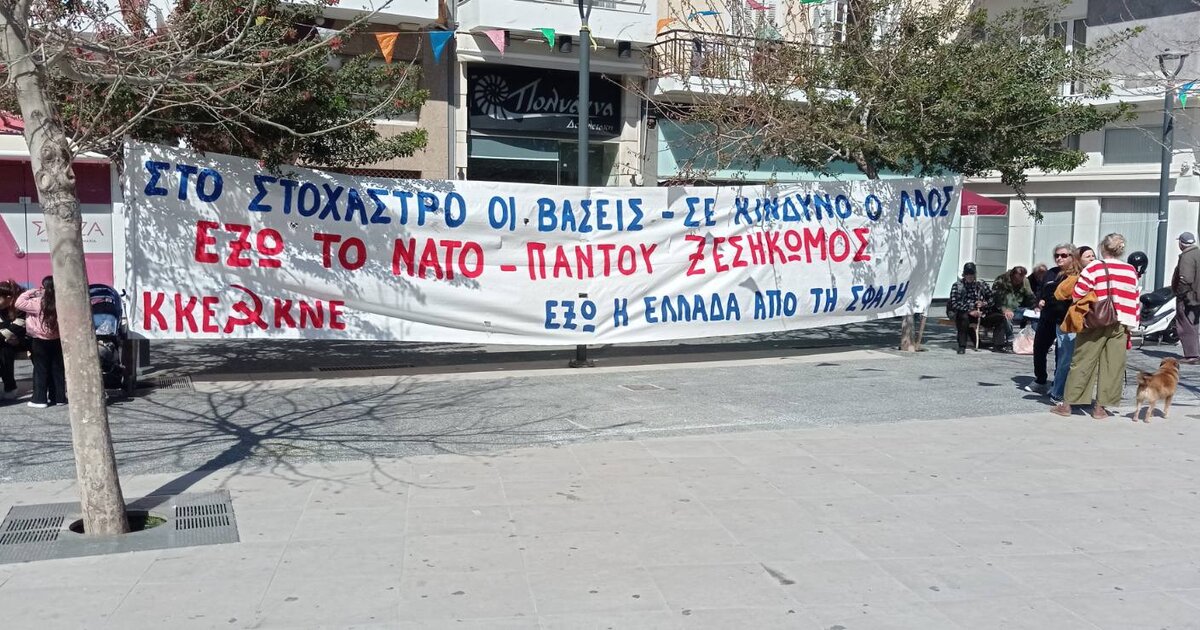 Πολύμνια
ΣΤΟ ΣΤΟΧΑΣΤΡΟ ΟΙ ΒΑΣΕΙΣ - ΣΕ ΚΙΝΔΥΝΟ Ο ΛΑΟΣ
ΕΞΩ ΤΟ ΝΑΤΟ - ΠΑΝΤΟΥ ΞΕΣΗΚΩΜΟΣ
ΚΚΕ ΚΝΕ
ΕΞΩ Η ΕΛΛΑΔΑ ΑΠΟ ΤΗ ΣΦΑΓΗ